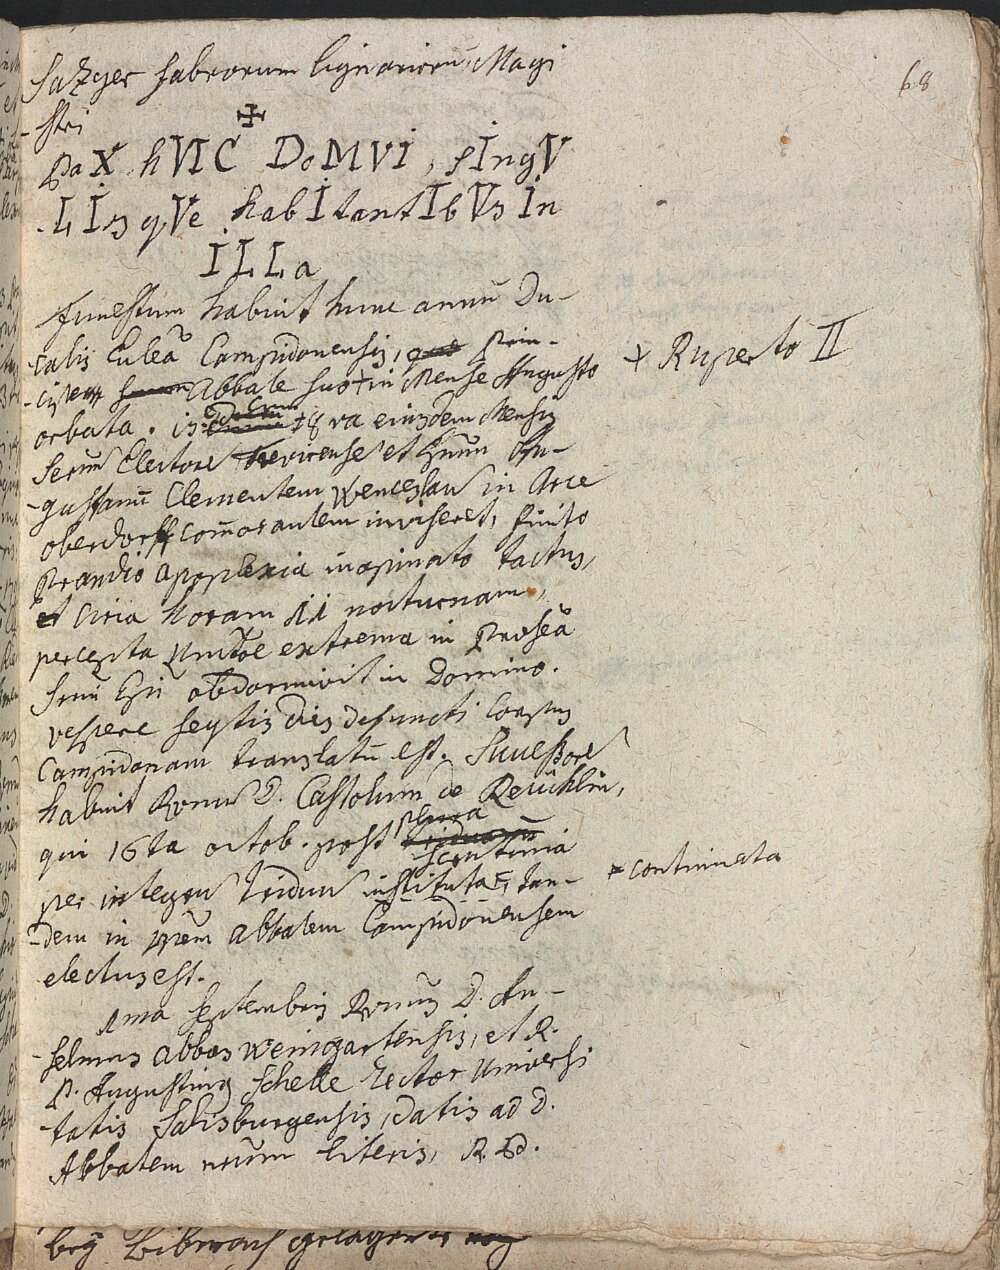 68
Sazger fabrorum lignariorū Magi
-stri
✠
PaX hVIC DoMVI, sIngV
-LIsqVe habItantIbVs In
ILLa
Funestum habuit hunc annū Du-
calis Eulea Campidonensis, Prin-
cipe Abbate suo + in Mense Augusto
+ Ruperto II
orbata. is dum 18va eiusdem Mensis
Serūm Electore Trevirense et Epūm Au-
-gustanū Clementem Wenceslaū in Arce
oberdorff comōrantem inviseret, finito
prandio apoplexia inopinato tactus,
et circa horam 11 nocturnam,
percepta Unctōe extrema in Prosēā
Srmi Epī obdormivit in Domino.
vespere septis dies defuncti Corpus
Campidonam translatū est. Successorē
habuit Rvmū D. Castolum de Reichlin,
qui 16ta octob. post plura
scrutinia
per integrū triduū instituta =, tan-
= continuata
-dem in Prēm abbatem Campidōnensem
electus est.
1ma Septembris Rvmūs D. An-
-selmus abbas Weingartensis, et R.
P. Augustinus Schelle Rector Universi
-tatis Salisburgensis, datis ad D.
Abbatem nrūm literis, R. P.
bey Bibrach gelagert